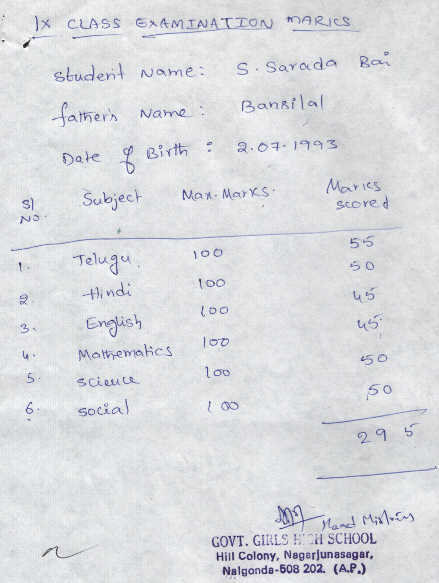 IX CLASS EXAMINATION MARKS
Student Name: S. Sarada Bai
father's Name: Bansilal
Date of Birth: 2.07.1993
Sl No. Subject Max. Marks. Marks scored
1. Telugu. 100 55
2. Hindi 100 50
3. English 100 45
4. Mathematics 100 45
5. science 100 50
6. social 100 50
295
Head Mistress
GOVT. GIRLS HIGH SCHOOL
Hill Colony, Nagarjunasagar,
Nalgonda-508 202. (A.P.)